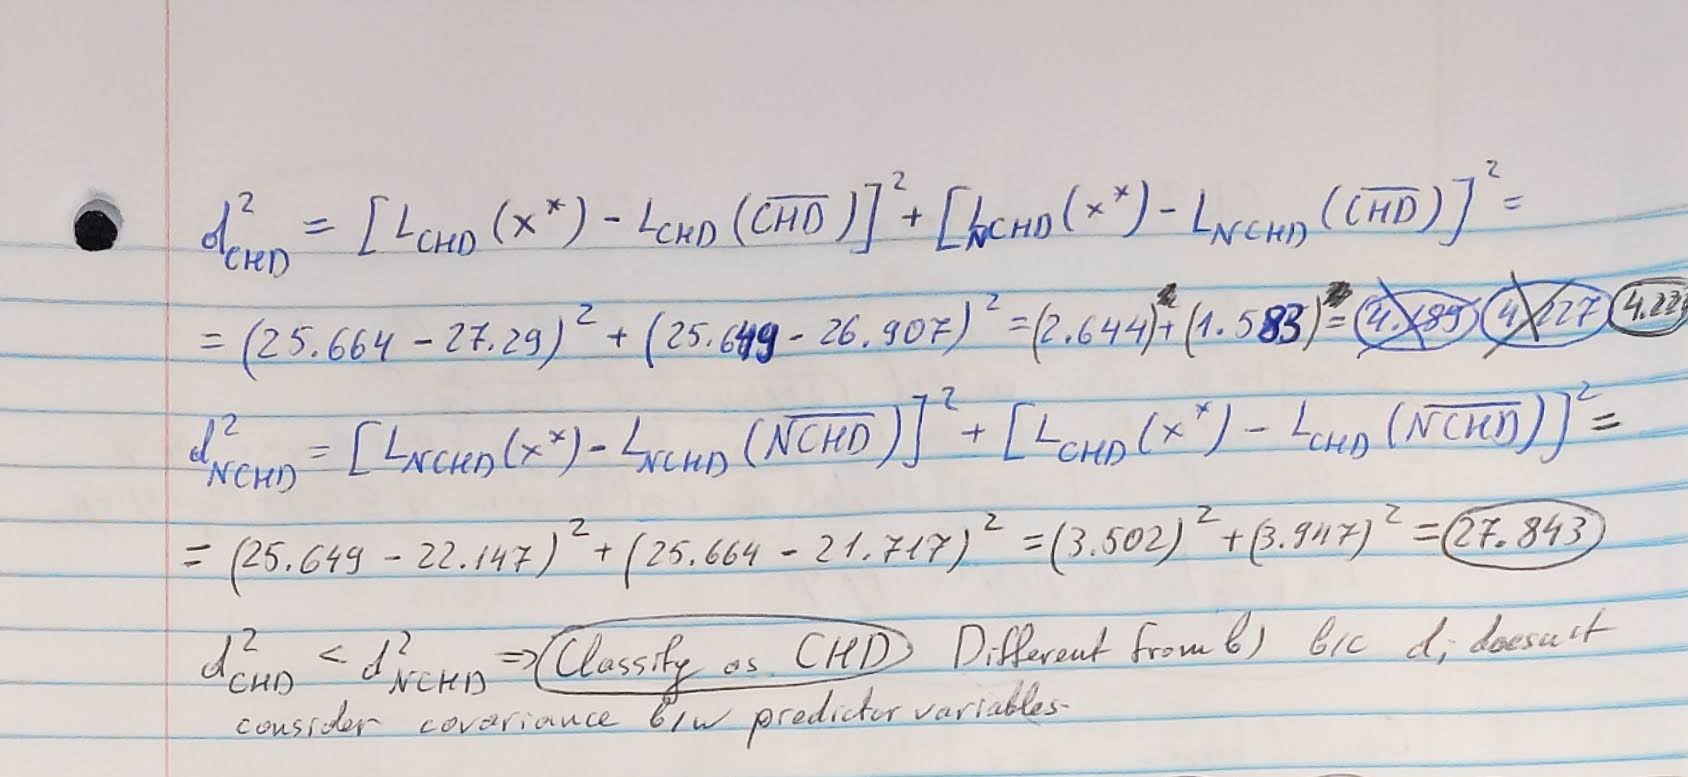 d²_CHD = [L_CHD (x*) - L_CHD (C̅H̅D̅)]² + [L_NCHD (x*) - L_NCHD (C̅H̅D̅)]² =
= (25.664 - 27.29)² + (25.649 - 26.907)² = (2.644) + (1.583) = 4.227
d²_NCHD = [L_NCHD (x*) - L_NCHD (N̅C̅H̅D̅)]² + [L_CHD (x*) - L_CHD (N̅C̅H̅D̅)]² =
= (25.649 - 22.147)² + (25.664 - 21.717)² = (3.502)² + (3.947)² = 27.843
d²_CHD < d²_NCHD => Classify as CHD Different from b) b/c d_i doesn't
consider covariance b/w predictor variables.